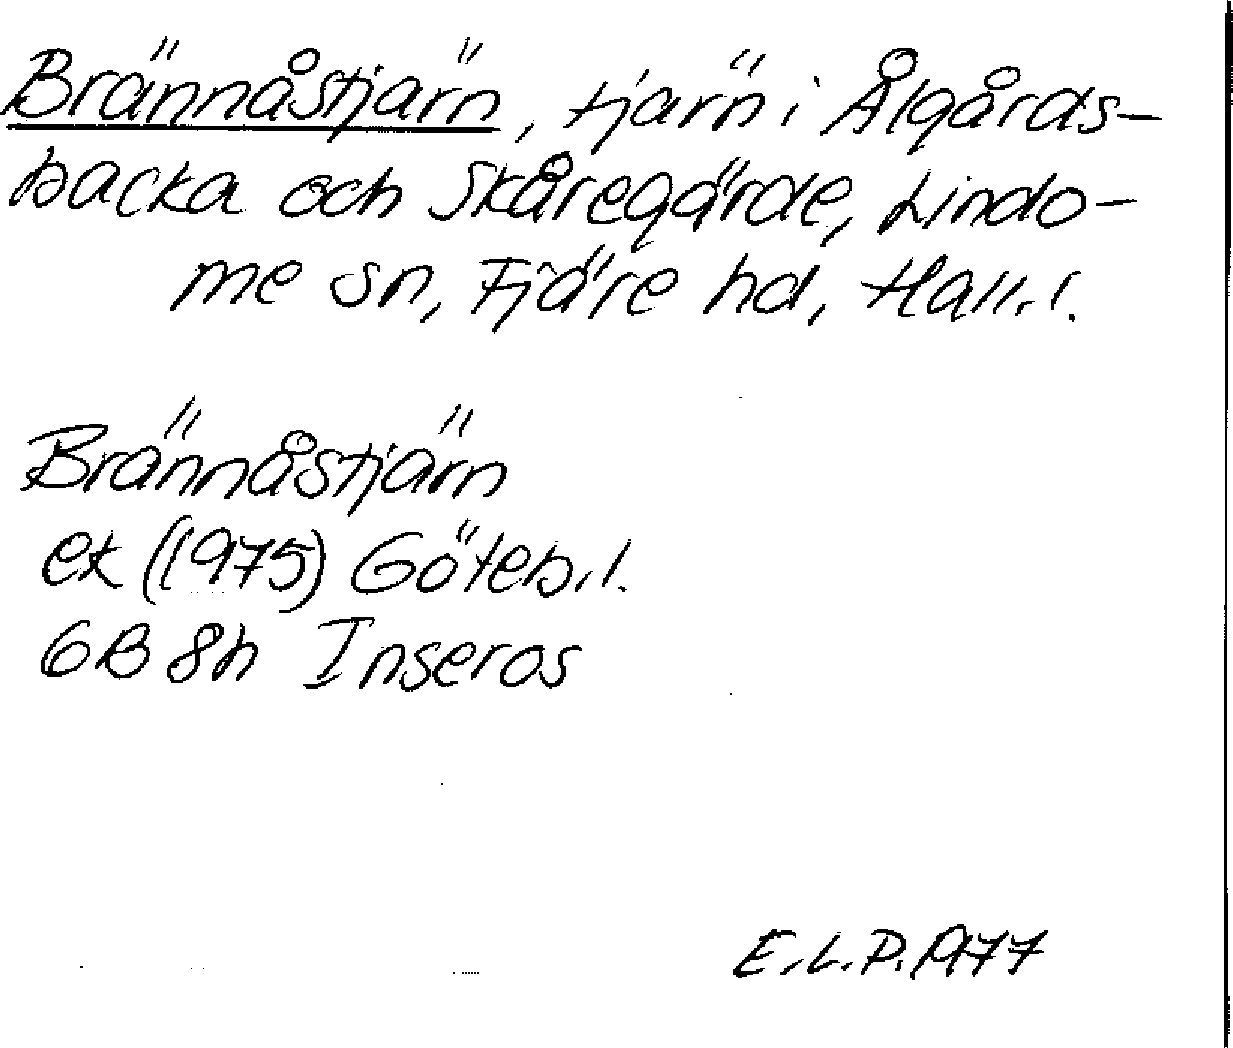 Brännåstjärn, tjärn i Ålgårds-
backa och Skåregärde, Lindo-
me sn, Fjäre hd, Hall. l.
Brännåstjärn
ek (1975) Göteb. l.
6B 8h Inseros
E.L.P. 1977